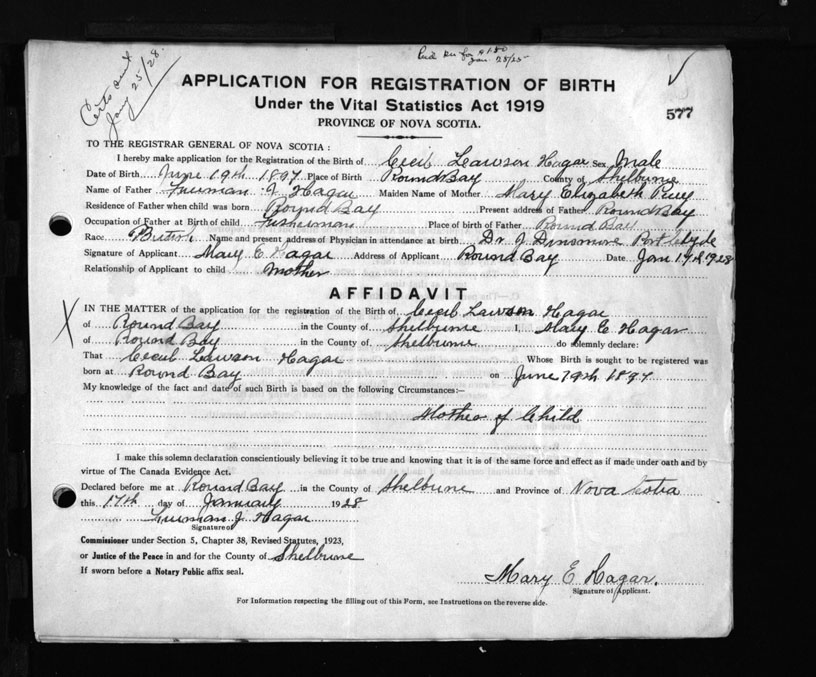 Certs sent
Jany 25/28
Jan. 28/28
APPLICATION FOR REGISTRATION OF BIRTH
Under the Vital Statistics Act 1919
PROVINCE OF NOVA SCOTIA.
577
TO THE REGISTRAR GENERAL OF NOVA SCOTIA :
I hereby make application for the Registration of the Birth of Cecil Lawson Hagar Sex Male
Date of Birth June 19th 1897 Place of Birth Round Bay County of Shelburne
Name of Father Freeman J Hagar Maiden Name of Mother Mary Elizabeth
Residence of Father when child was born Round Bay Present address of Father Round Bay
Occupation of Father at Birth of child Fisherman Place of birth of Father Round Bay
Race British Name and present address of Physician in attendance at birth Dr. J Dinsmore Port Clyde
Signature of Applicant Mary E Hagar Address of Applicant Round Bay Date Jan 17th 1928
Relationship of Applicant to child mother
AFFIDAVIT
X
IN THE MATTER of the application for the registration of the Birth of Cecil Lawson Hagar
of Round Bay in the County of Shelburne I, Mary E. Hagar
of Round Bay in the County of Shelburne do solemnly declare:
That Cecil Lawson Hagar Whose Birth is sought to be registered was
born at Round Bay on June 19th 1897
My knowledge of the fact and date of such Birth is based on the following Circumstances:—
Mother of Child
I make this solemn declaration conscientiously believing it to be true and knowing that it is of the same force and effect as if made under oath and by
virtue of The Canada Evidence Act.
Declared before me at Round Bay in the County of Shelburne and Province of Nova Scotia
this 17th day of January 1928
Freeman J. Hagar
Signature of
Commissioner under Section 5, Chapter 38, Revised Statutes, 1923,
or Justice of the Peace in and for the County of Shelburne
If sworn before a Notary Public affix seal.
Mary E Hagar.
Signature of Applicant.
For Information respecting the filling out of this Form, see Instructions on the reverse side.